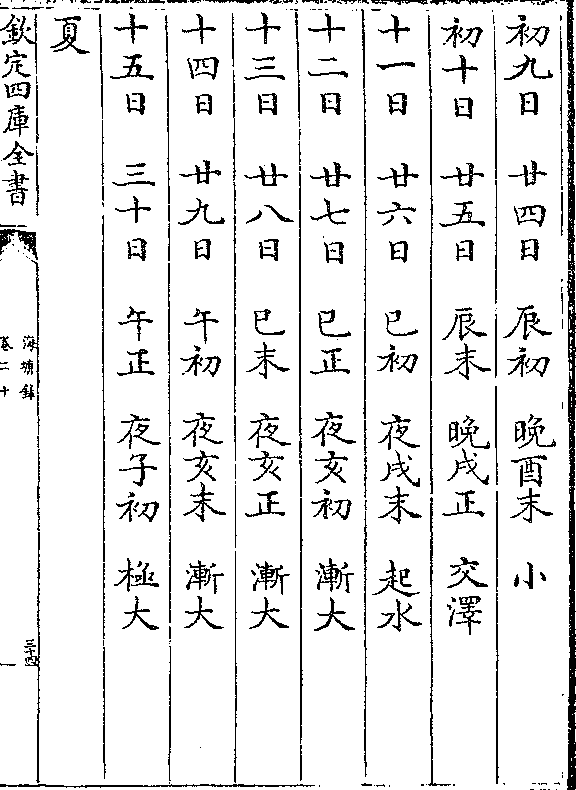 初九日 廿四日 辰初 晚酉末 小
初十日 廿五日 辰末 晚戌正 交澤
十一日 廿六日 巳初 夜戌末 起水
十二日 廿七日 巳正 夜亥初 漸大
十三日 廿八日 巳末 夜亥正 漸大
十四日 廿九日 午初 夜亥末 漸大
十五日 三十日 午正 夜子初 極大
夏
欽定四庫全書
海塘錄
卷二十
三十四